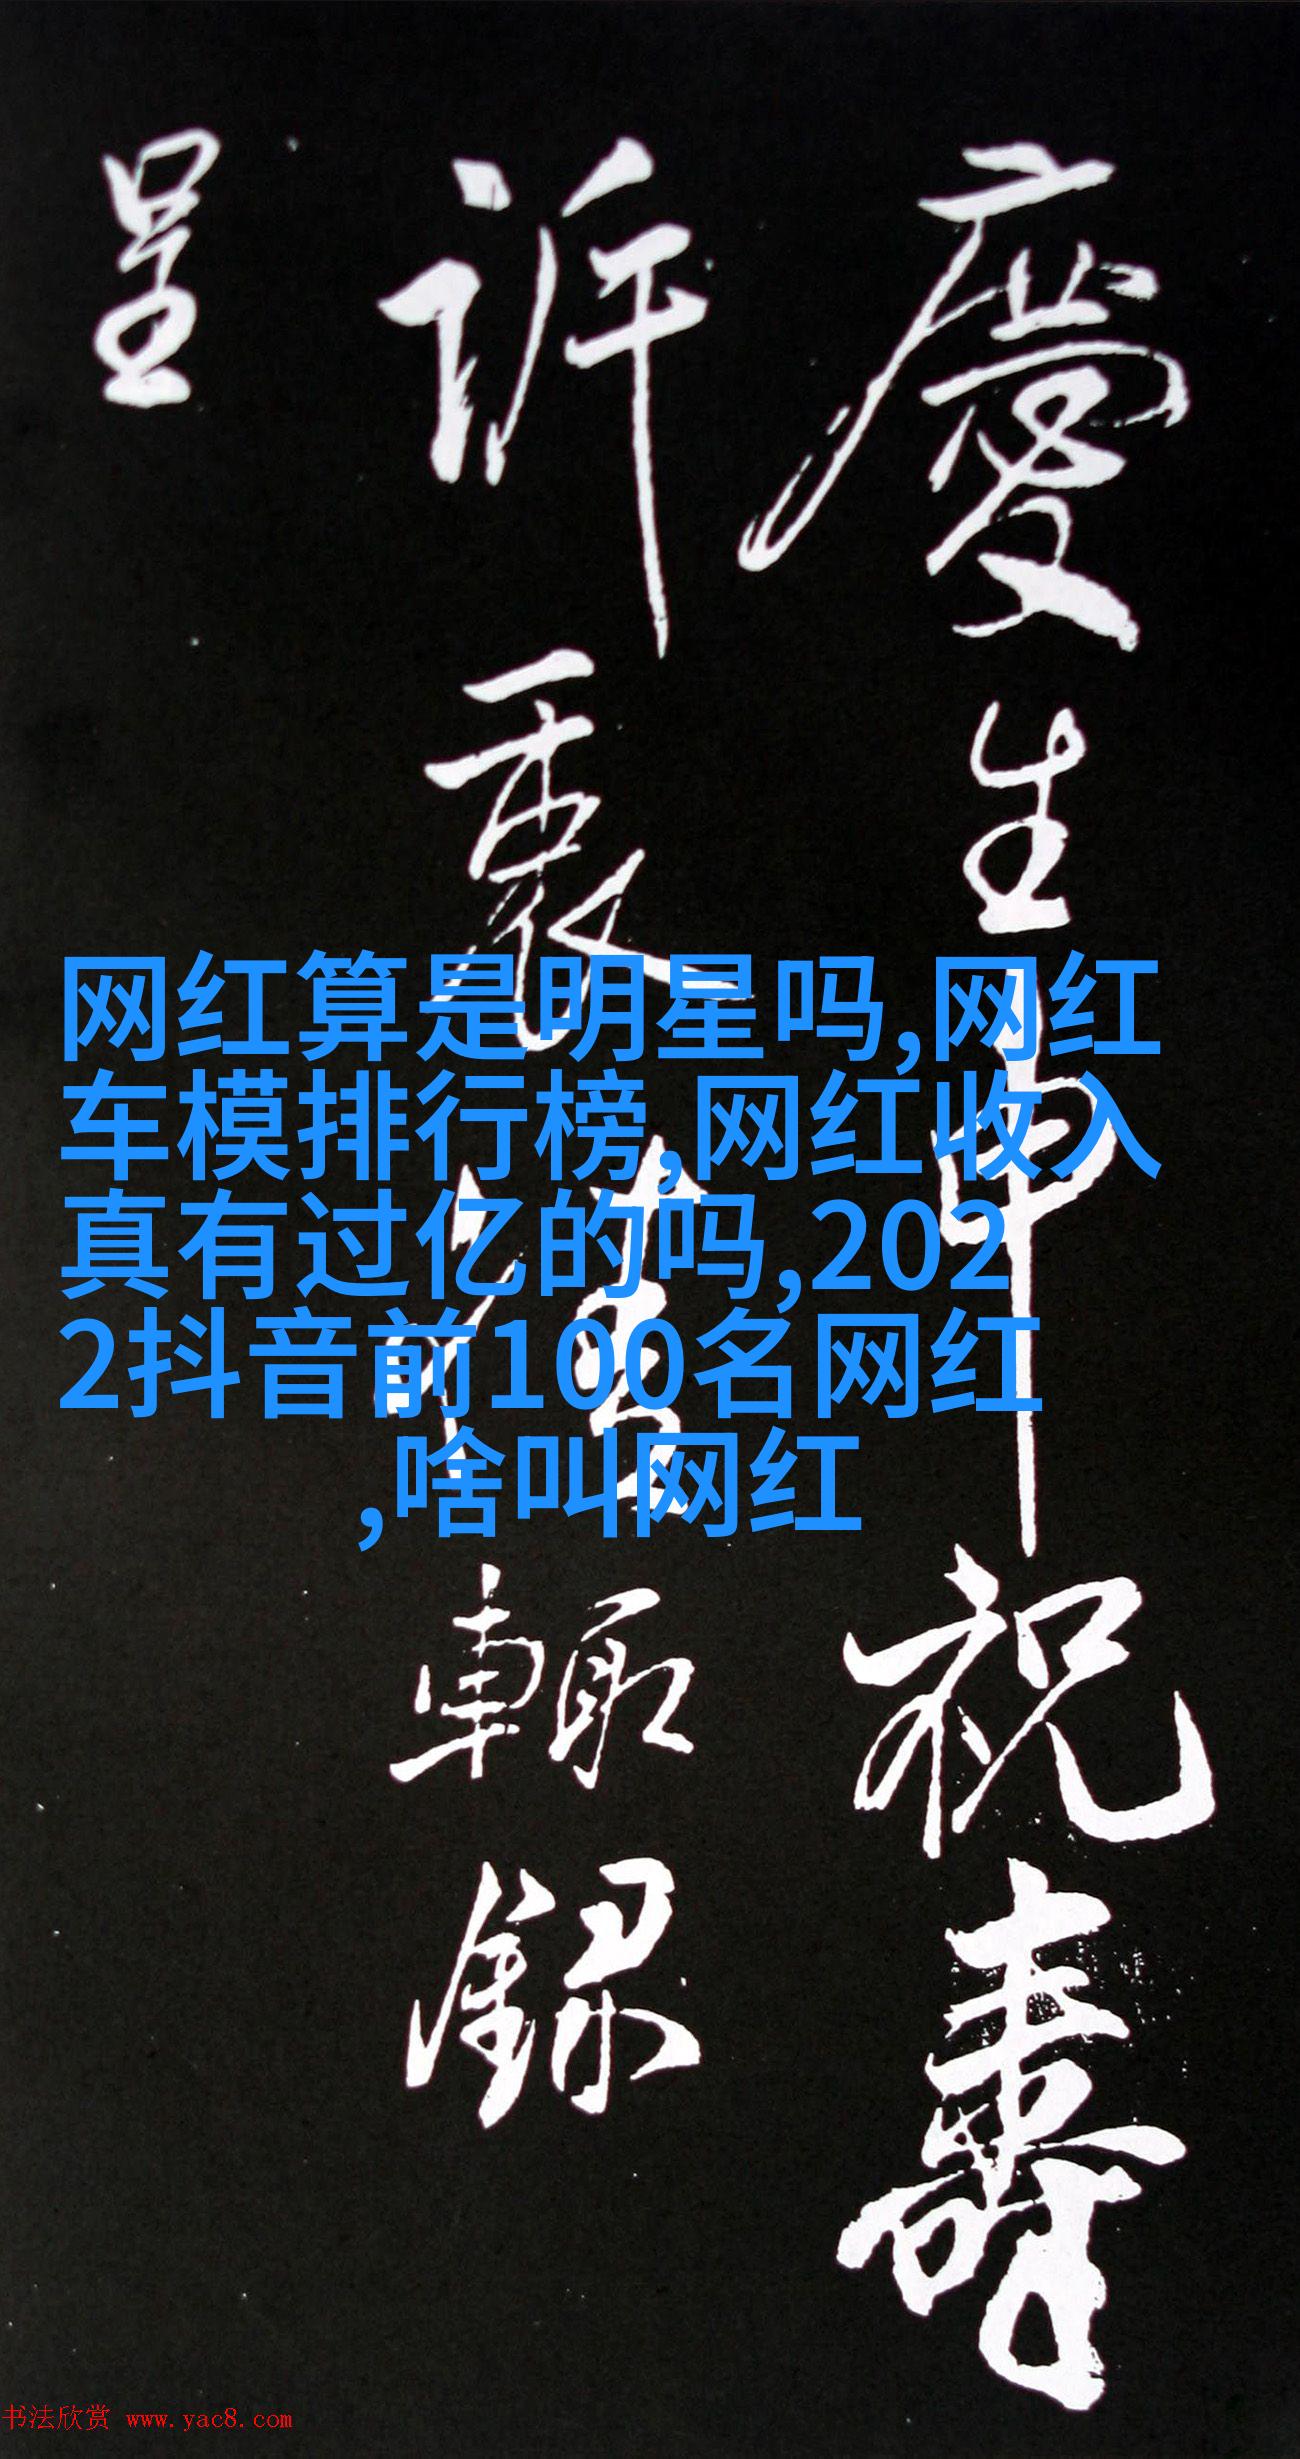 慶生申祝壽
訢衷謹輒録
呈
网红算是明星吗,网红
车模排行榜,网红收入
真有过亿的吗,202
2抖音前100名网红
,啥叫网红
书法欣赏 www.yac8.com